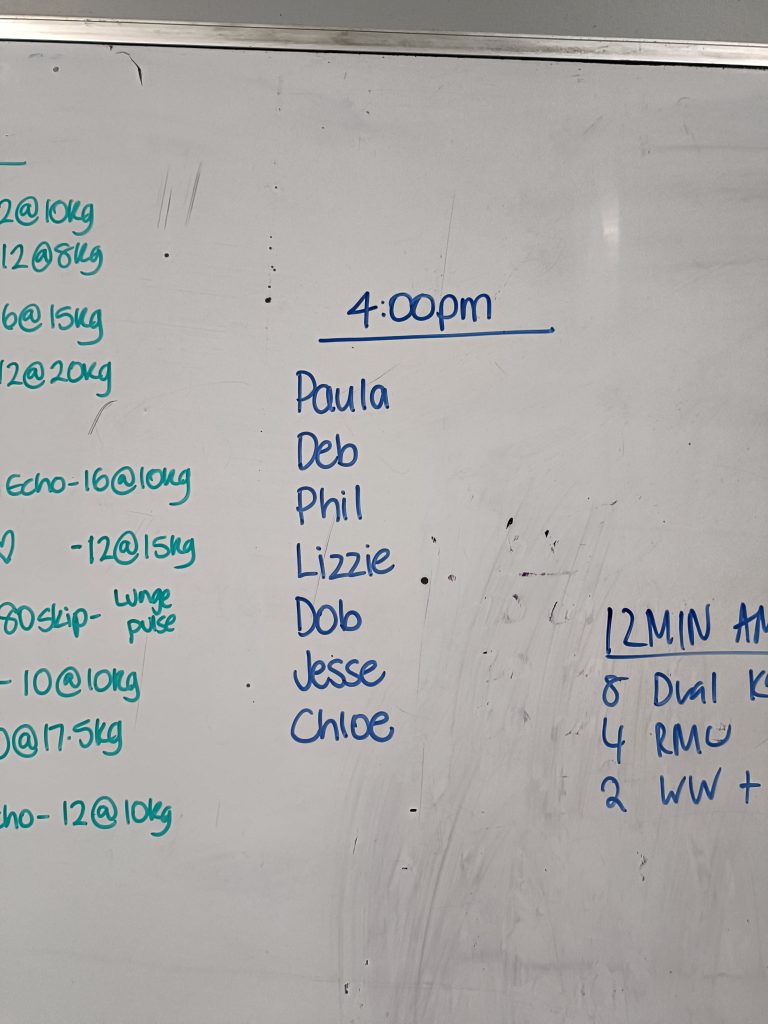 2@10kg
12@8kg
6@15kg
12@20kg
Echo-16@10kg
-12@15kg
80skip- Lunge pulse
- 10@10kg
@17.5kg
ho- 12@10kg
4:00pm
Paula
Deb
Phil
Lizzie
Dob
Jesse
Chloe
12MIN AM
8 Dual K
4 RMU
2 WW +